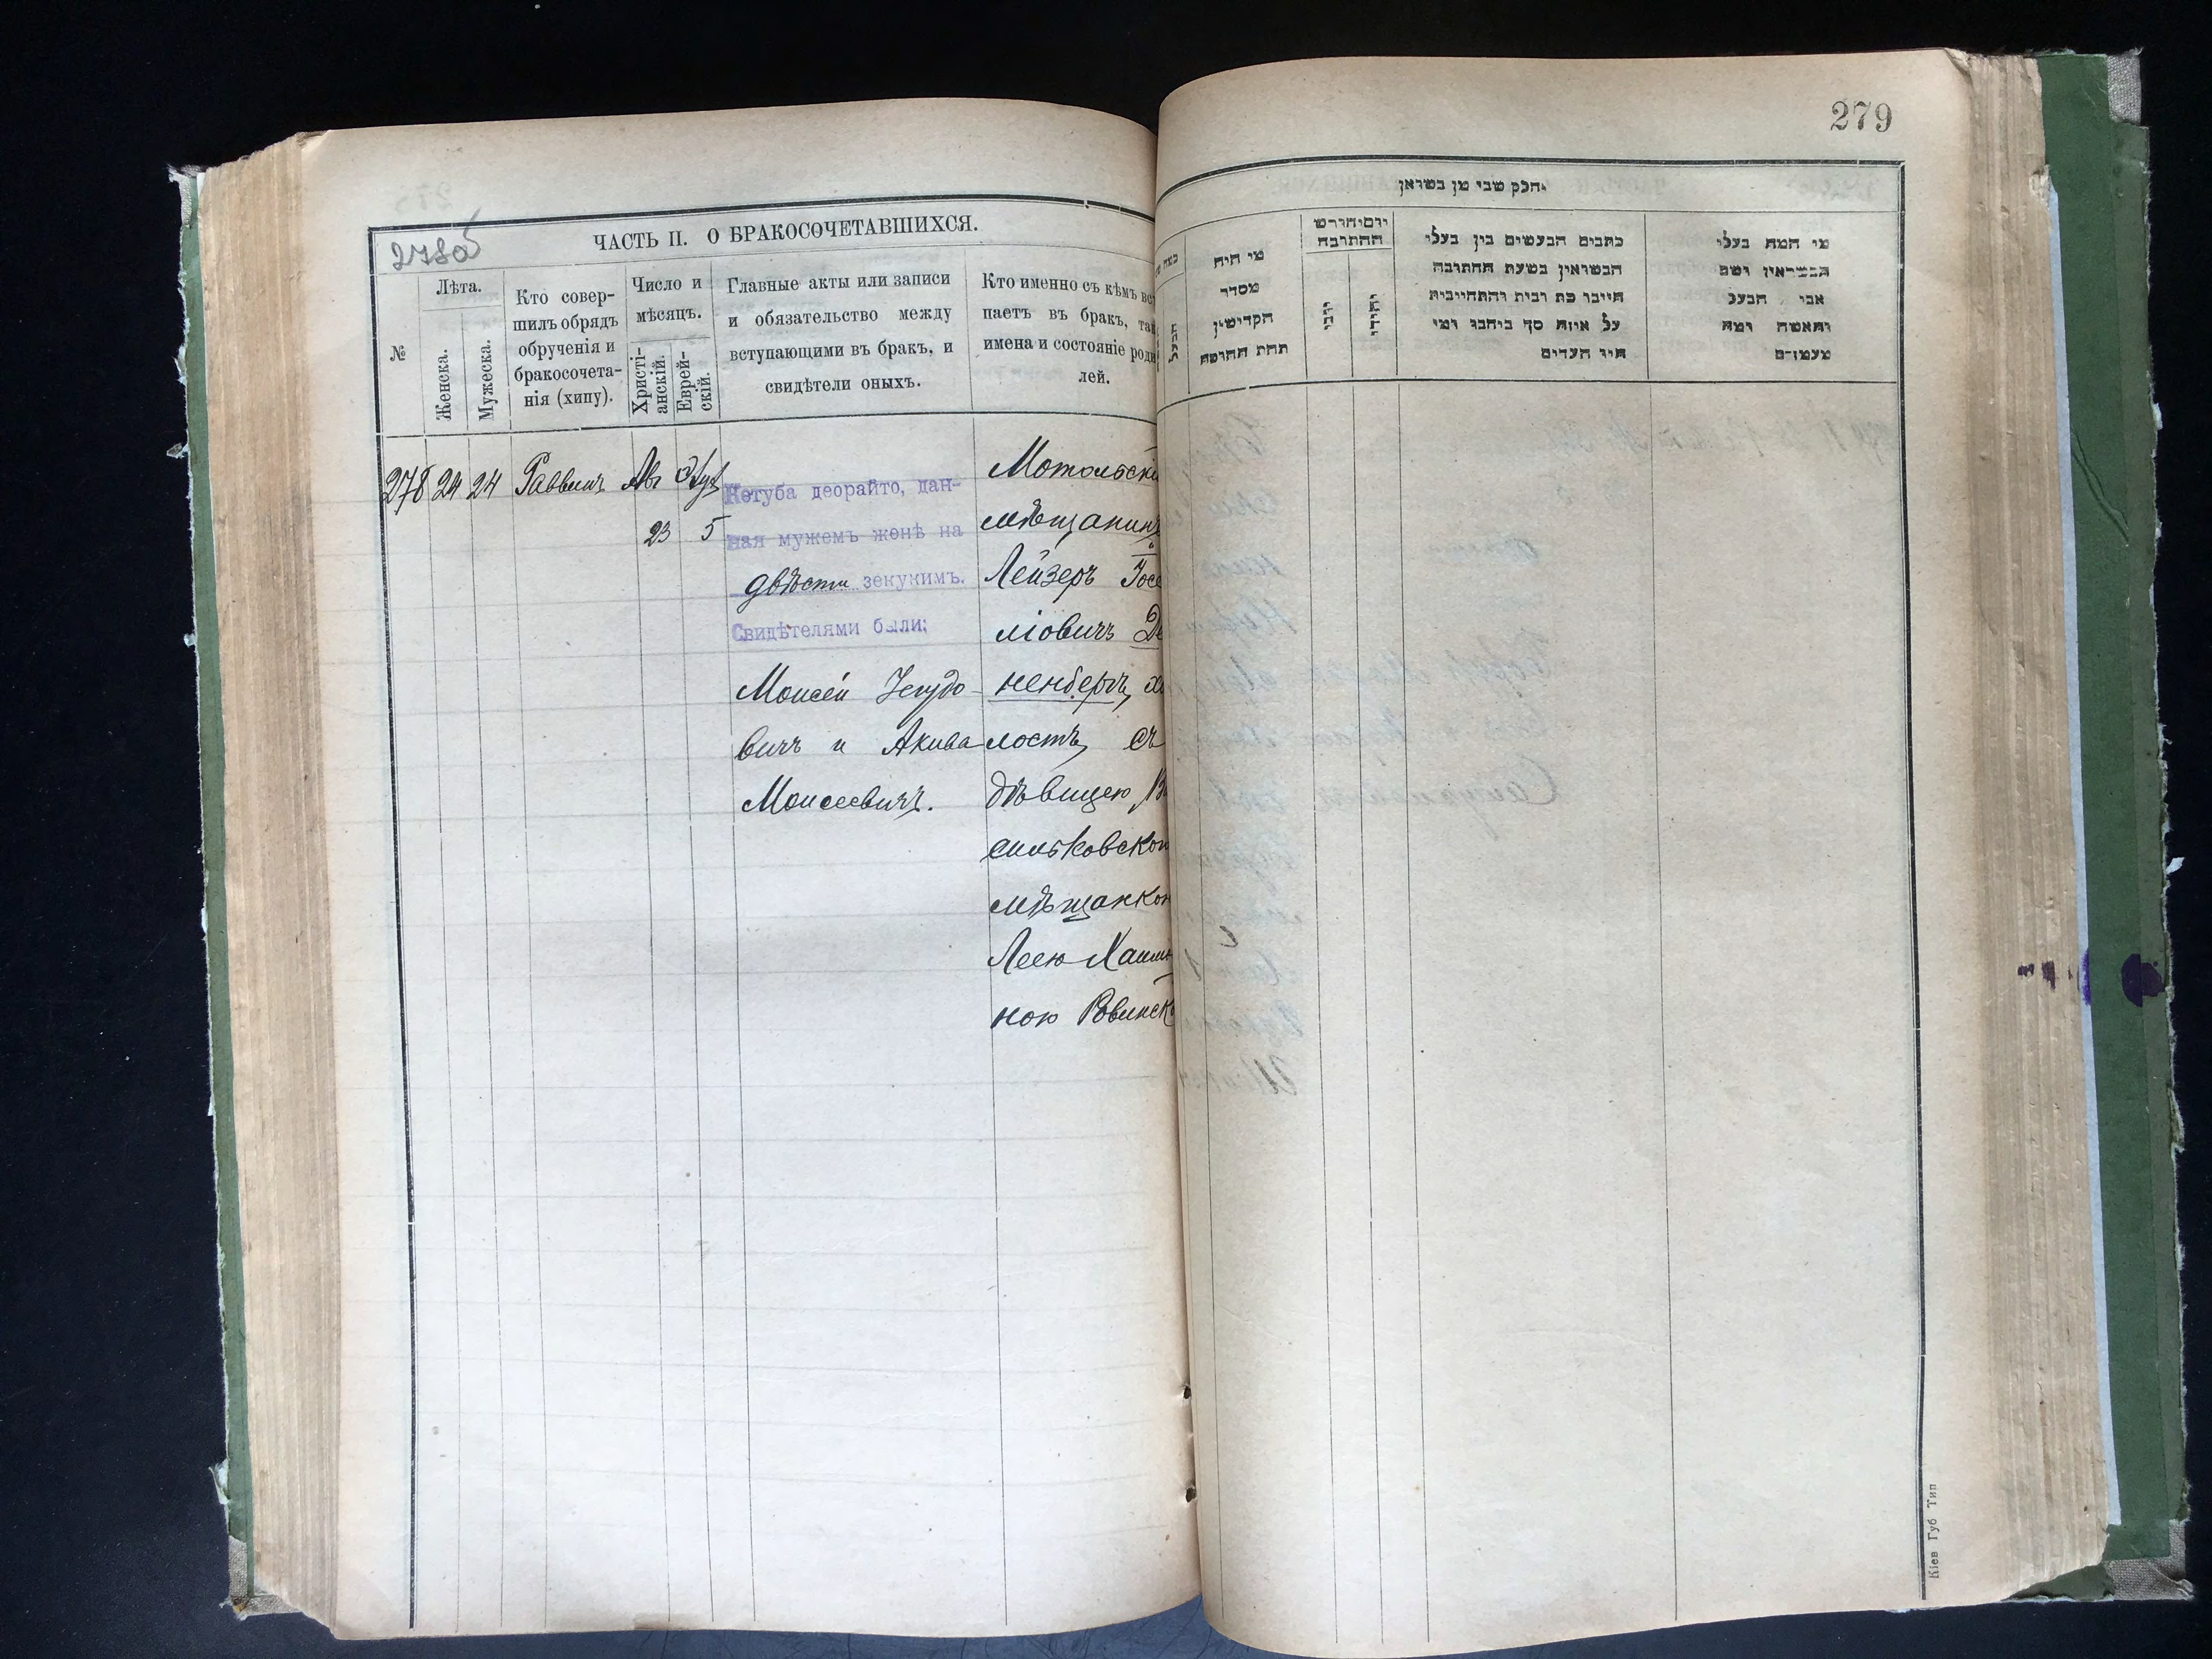 278об
ЧАСТЬ II. О БРАКОСОЧЕТАВШИХСЯ.
№
Лѣта.
Женска.
Мужеска.
Кто совер-
шилъ обрядъ
обрученія и
бракосочета-
нія (хипу).
Число и
мѣсяцъ.
Христі-
анскій.
Еврей-
скій.
Главные акты или записи
и обязательство между
вступающими въ брак, и
свидѣтели оныхъ.
Кто именно съ кѣмъ вс
паетъ въ бракъ, так
имена и состояніе роди
лей.
278 24 24 Раввинъ Авг
23 5
Кетуба деорайто, дан-
ная мужемъ женѣ на
двѣсти зекукимъ.
Свидѣтелями были:
Моисей Іегудо-
вичъ и Акива
Моисеевичъ.
Мотольскі
мѣщанинъ
Лейзеръ Іосе
ліовичъ Де
ненбергъ, хо
лостъ, съ
дѣвицею Ва
сильковской
мѣщанкой
Леею Хаимо
ною Ровинск
279
חלק שני מן נשואן
הבעל
מי היה
מסדר
הקדושין
תחת החופה
יום וחודש
החתונה
נוצרי
יהודי
כתבים הנעשים בין בעלי
הנשואין בשעת החתונה
חייבו כת ובית והתחייבות
על איזה סך ביחבו ומי
היו העדים
מי המה בעלי
הנשואין ושם
אבי הבעל
והאשה ומה
מעמדם
Кіев Губ Тип